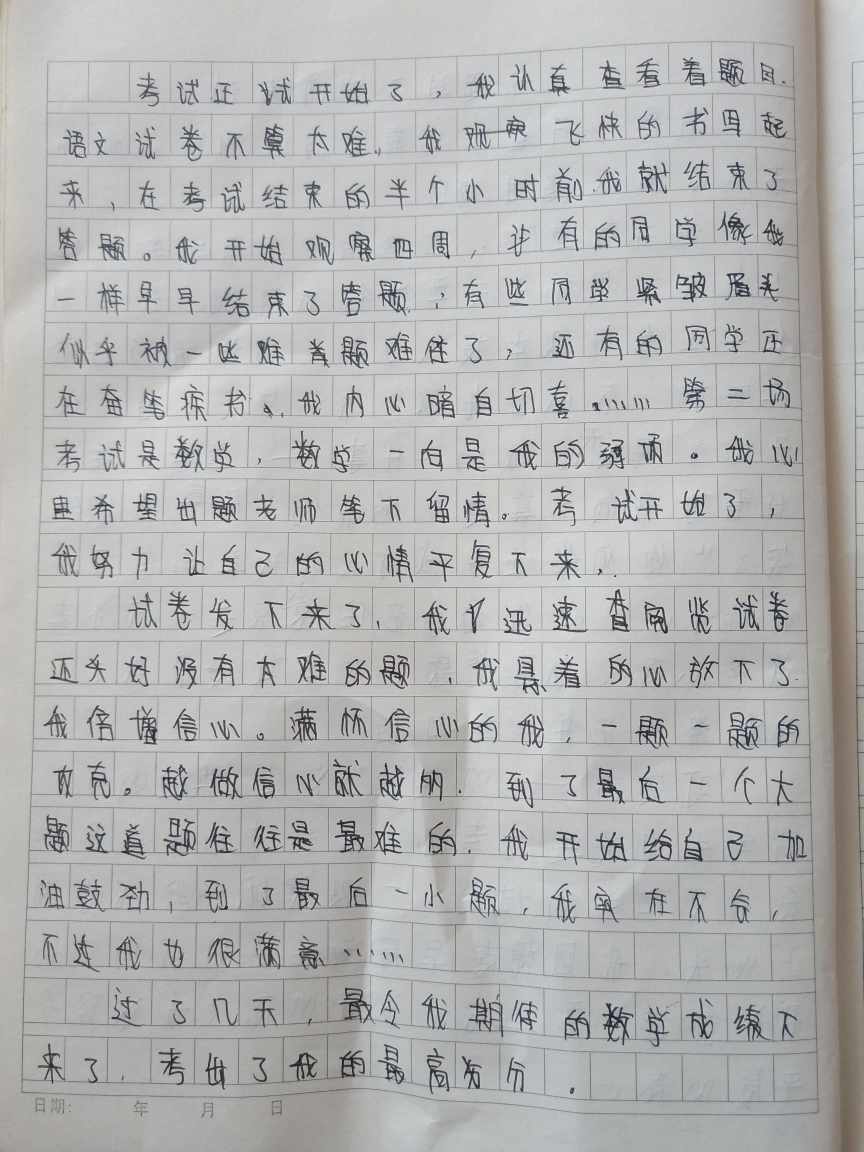 考试正试开始了，我认真查看着题目.
语文试卷不算太难。我飞快的书写起
来，在考试结束的半个小时前.我就结束了
答题。我开始观察四周，有的同学像我
一样早早结束了答题，有些同学紧皱眉头
似乎被一些难题难住了，还有的同学正
在奋笔疾书、.我内心暗自切喜……第二场
考试是数学，数学一向是我的弱项。我心
里希望出题老师笔下留情。考试开始了，
我努力让自己的心情平复下来，.
试卷发下来了，我迅速查阅览试卷
还头好没有太难的题，我悬着的心放下了.
我倍增信心。满怀信心的我，一题一题的
攻克。越做信心就越明.到了最后一个大
题这道题往往是最难的.我开始给自己加
油鼓劲，到了最后一小题，我实在不会，
不过我也很满意……
过了几天，最令我期待的数学成绩下
来了.考出了我的最高分.
日期: 年 月 日